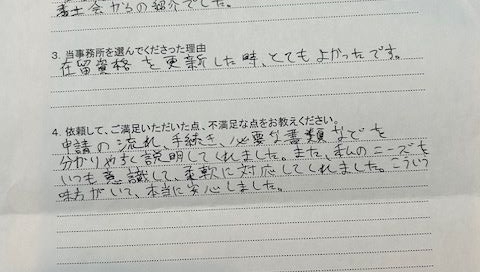 書士会からの紹介でした。
3. 当事務所を選んでくださった理由
在留資格を更新した時、とてもよかったです。
4. 依頼して、ご満足いただいた点、不満足な点をお教えください。
申請の流れ、手続き、必要な書類などを
分かりやすく説明してくれました。また、私のニーズを
いつも意識して、柔軟に対応してくれました。こういう
味方がいて、本当に安心しました。